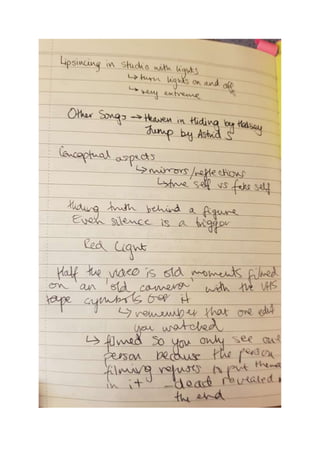 Lipsincing in studio with lights
↳ turn lights on and off
↳ very extreme
Other Songs → Heaven in Hiding by Halsey
Jump by Astrid S
Conceptual aspects
↳ mirrors/reflections
↳ true self vs fake self
Hiding truth behind a figure
Even silence is a trigger
Red Light
Half the video is old moments filmed
on an 'old camera' with the VHS
tape symbols over it
↳ remember that one edit
you watched
↳ filmed so you only see one
person because the person
filming refuses to put
in it - dead revealed
the end